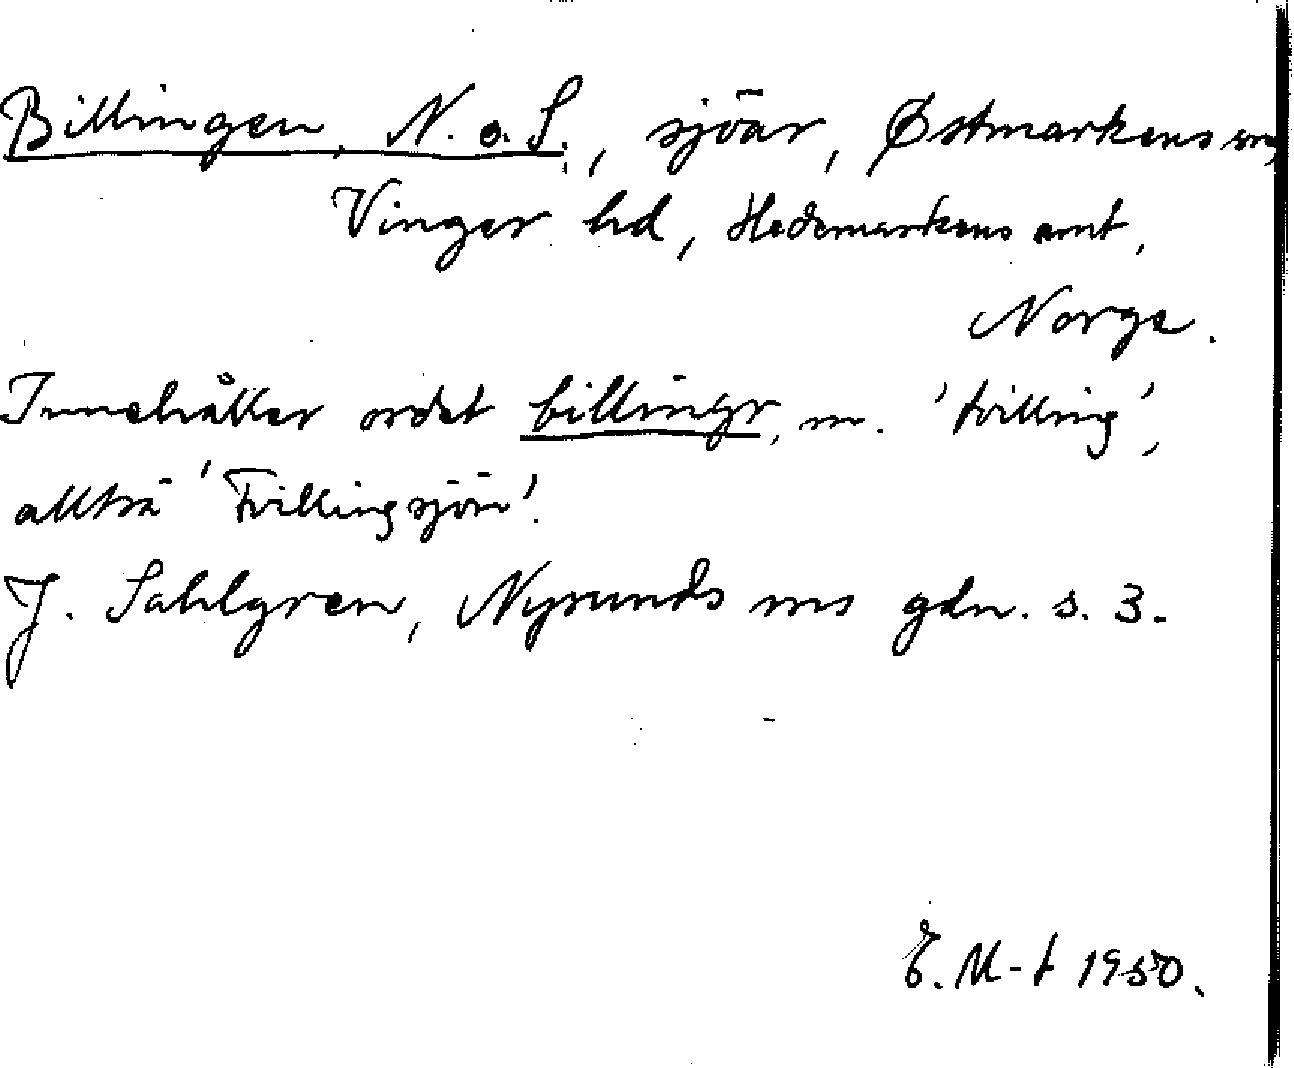 Billingen, N. o. S., sjöar, Østmarkens sn,
Vinger hd, Hedemarkens amt,
Norge.
Innehåller ordet billingr, m. 'tvilling',
alltså 'Tvillingsjön'.
J. Sahlgren, Nysunds sns gdn. s. 3.
E. M-t 1950.